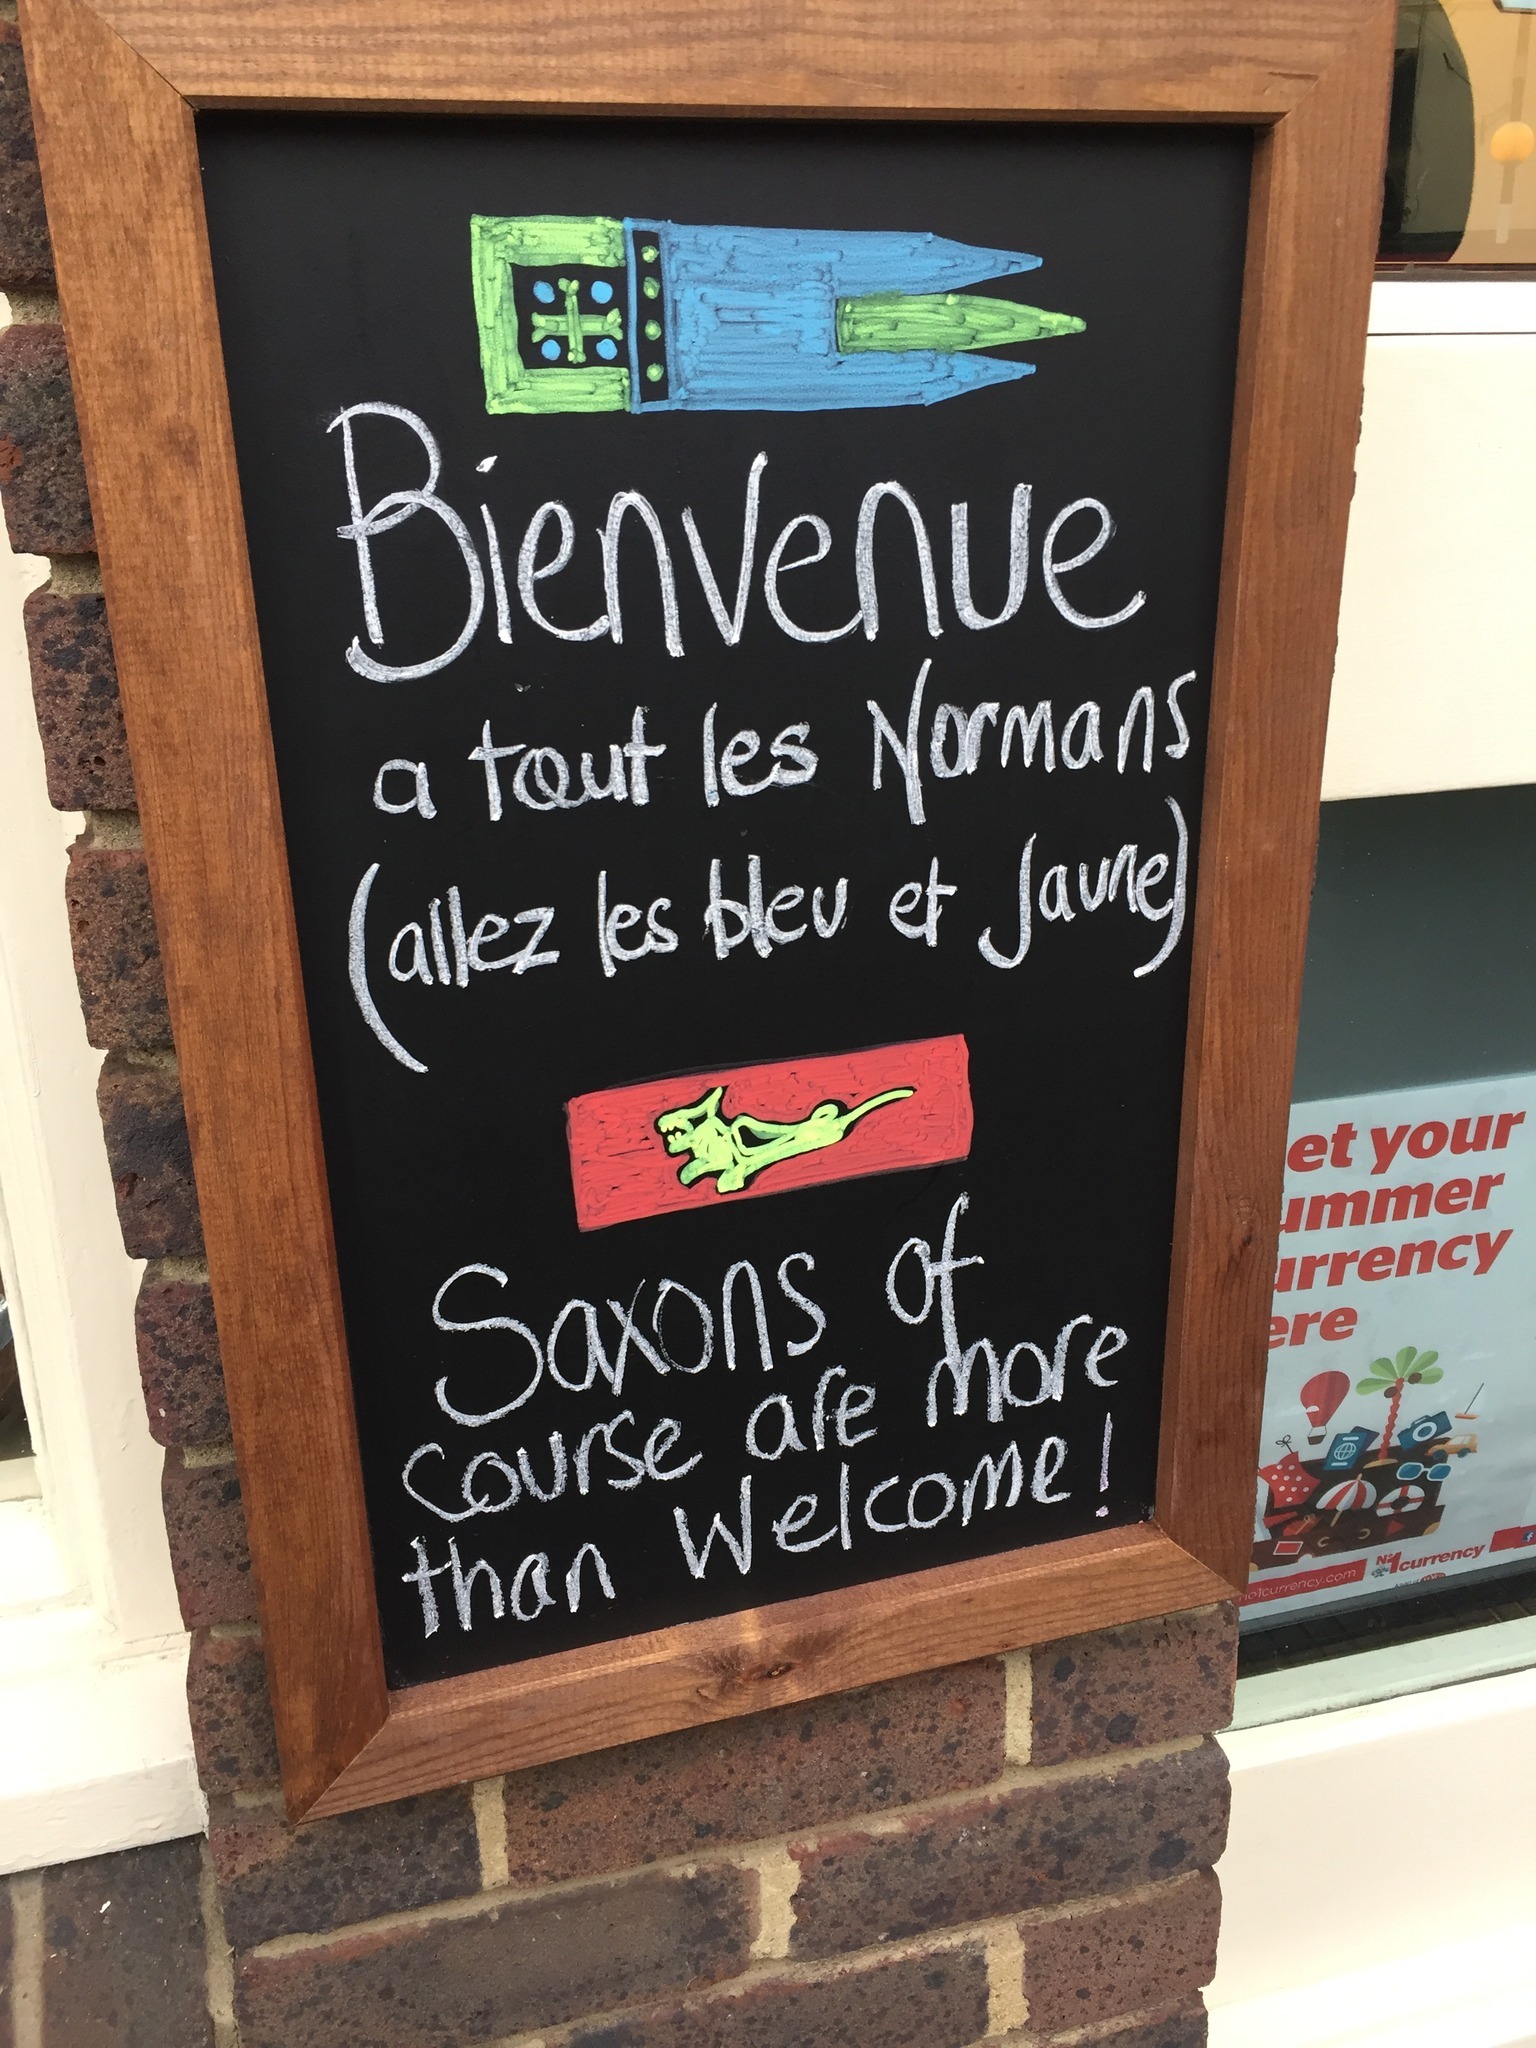 Bienvenue
a tout les Normans
(allez les bleu et Jaune)
Saxons of
course are more
than Welcome!
et your
ummer
urrency
ere
no1currency.com
No1currency